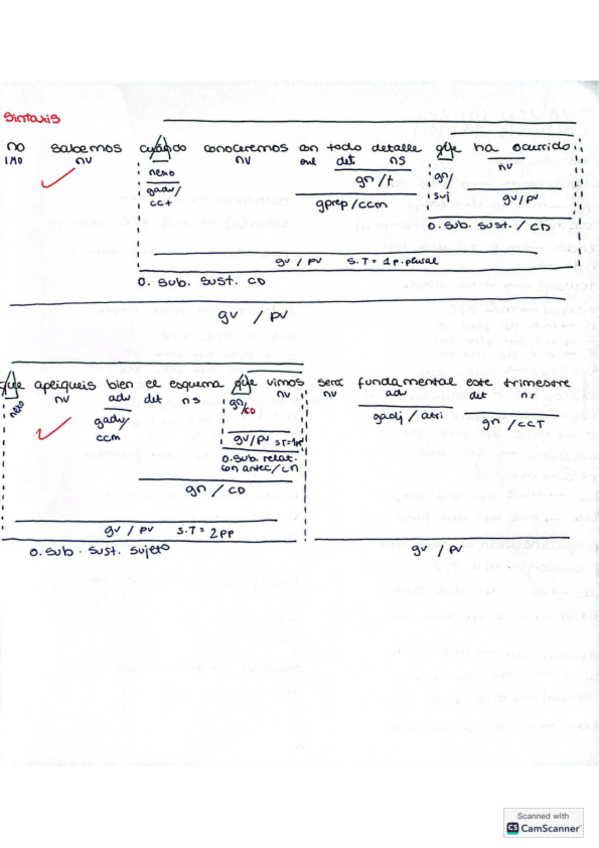 Sintaxis
no sabemos cuándo conoceremos con todo detalle que ha ocurrido
IMO nv nexo nv enl det ns gn/ nv
gadv/ gn/t. suj gv/pv
cct gprep/ccm O. sub. sust. / CD
gv / pv S.T = 1p.plural
O. sub. sust. CD
gv / pv
que apliqueis bien el esquema que vimos será fundamental este trimestre
nexo nv adv det ns gn/CD nv nv adv det ns
gadv/ gv/pv gadj / atri gn /CCT
ccm O.sub. relat.
con antec/cn
gn / CD
gv / pv S.T = 2pp
O. sub. sust. sujeto gv / pv
Scanned with
CS CamScanner